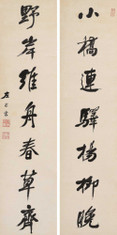 小橋連驛楊柳晚
野岸維舟春草齊